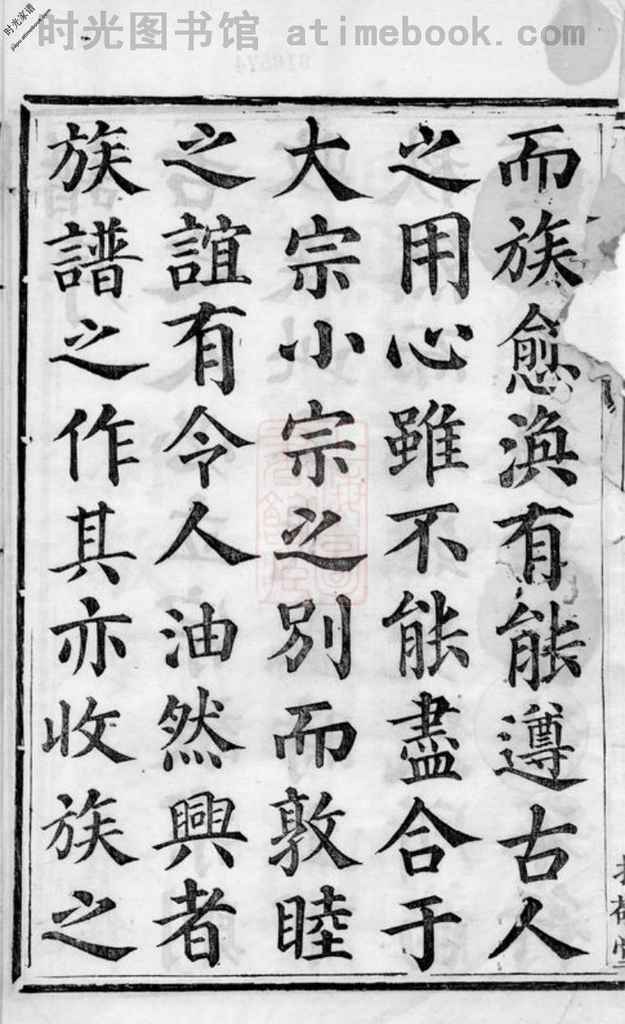 时光图书馆 atimebook.com
时光家谱
而族愈渙有能遵古人
之用心雖不能盡合于
大宗小宗之別而敦睦
之誼有令人油然興者
族譜之作其亦收族之